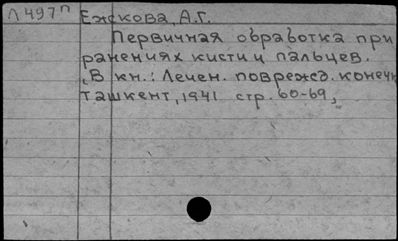 Л497п Ежскова, А.Г.
Первичная обработка при
ранениях кисти и пальцев.
В кн.: Лечен. поврежд. конечн
Ташкент, 1941 стр. 60-69,